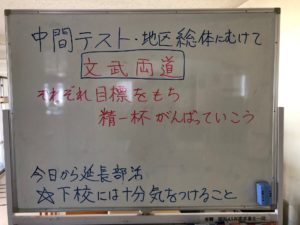 中間テスト・地区総体にむけて
文武両道
それぞれ目標をもち
精一杯がんばっていこう
今日から延長部活
☆下校には十分気をつけること